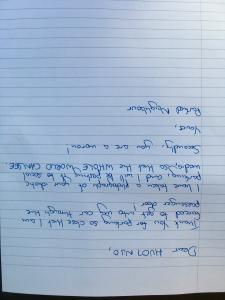 Dear HU07 NUO,
Thank you for parking so close that I am
forced to get into my car through the
passenger door!
I have taken a photograph of your idiotic
parking and I will be posting it to social
media, so that the WHOLE WORLD CAN SEE.
Secondly, you are a moron!
Yours,
Parked Neighbour